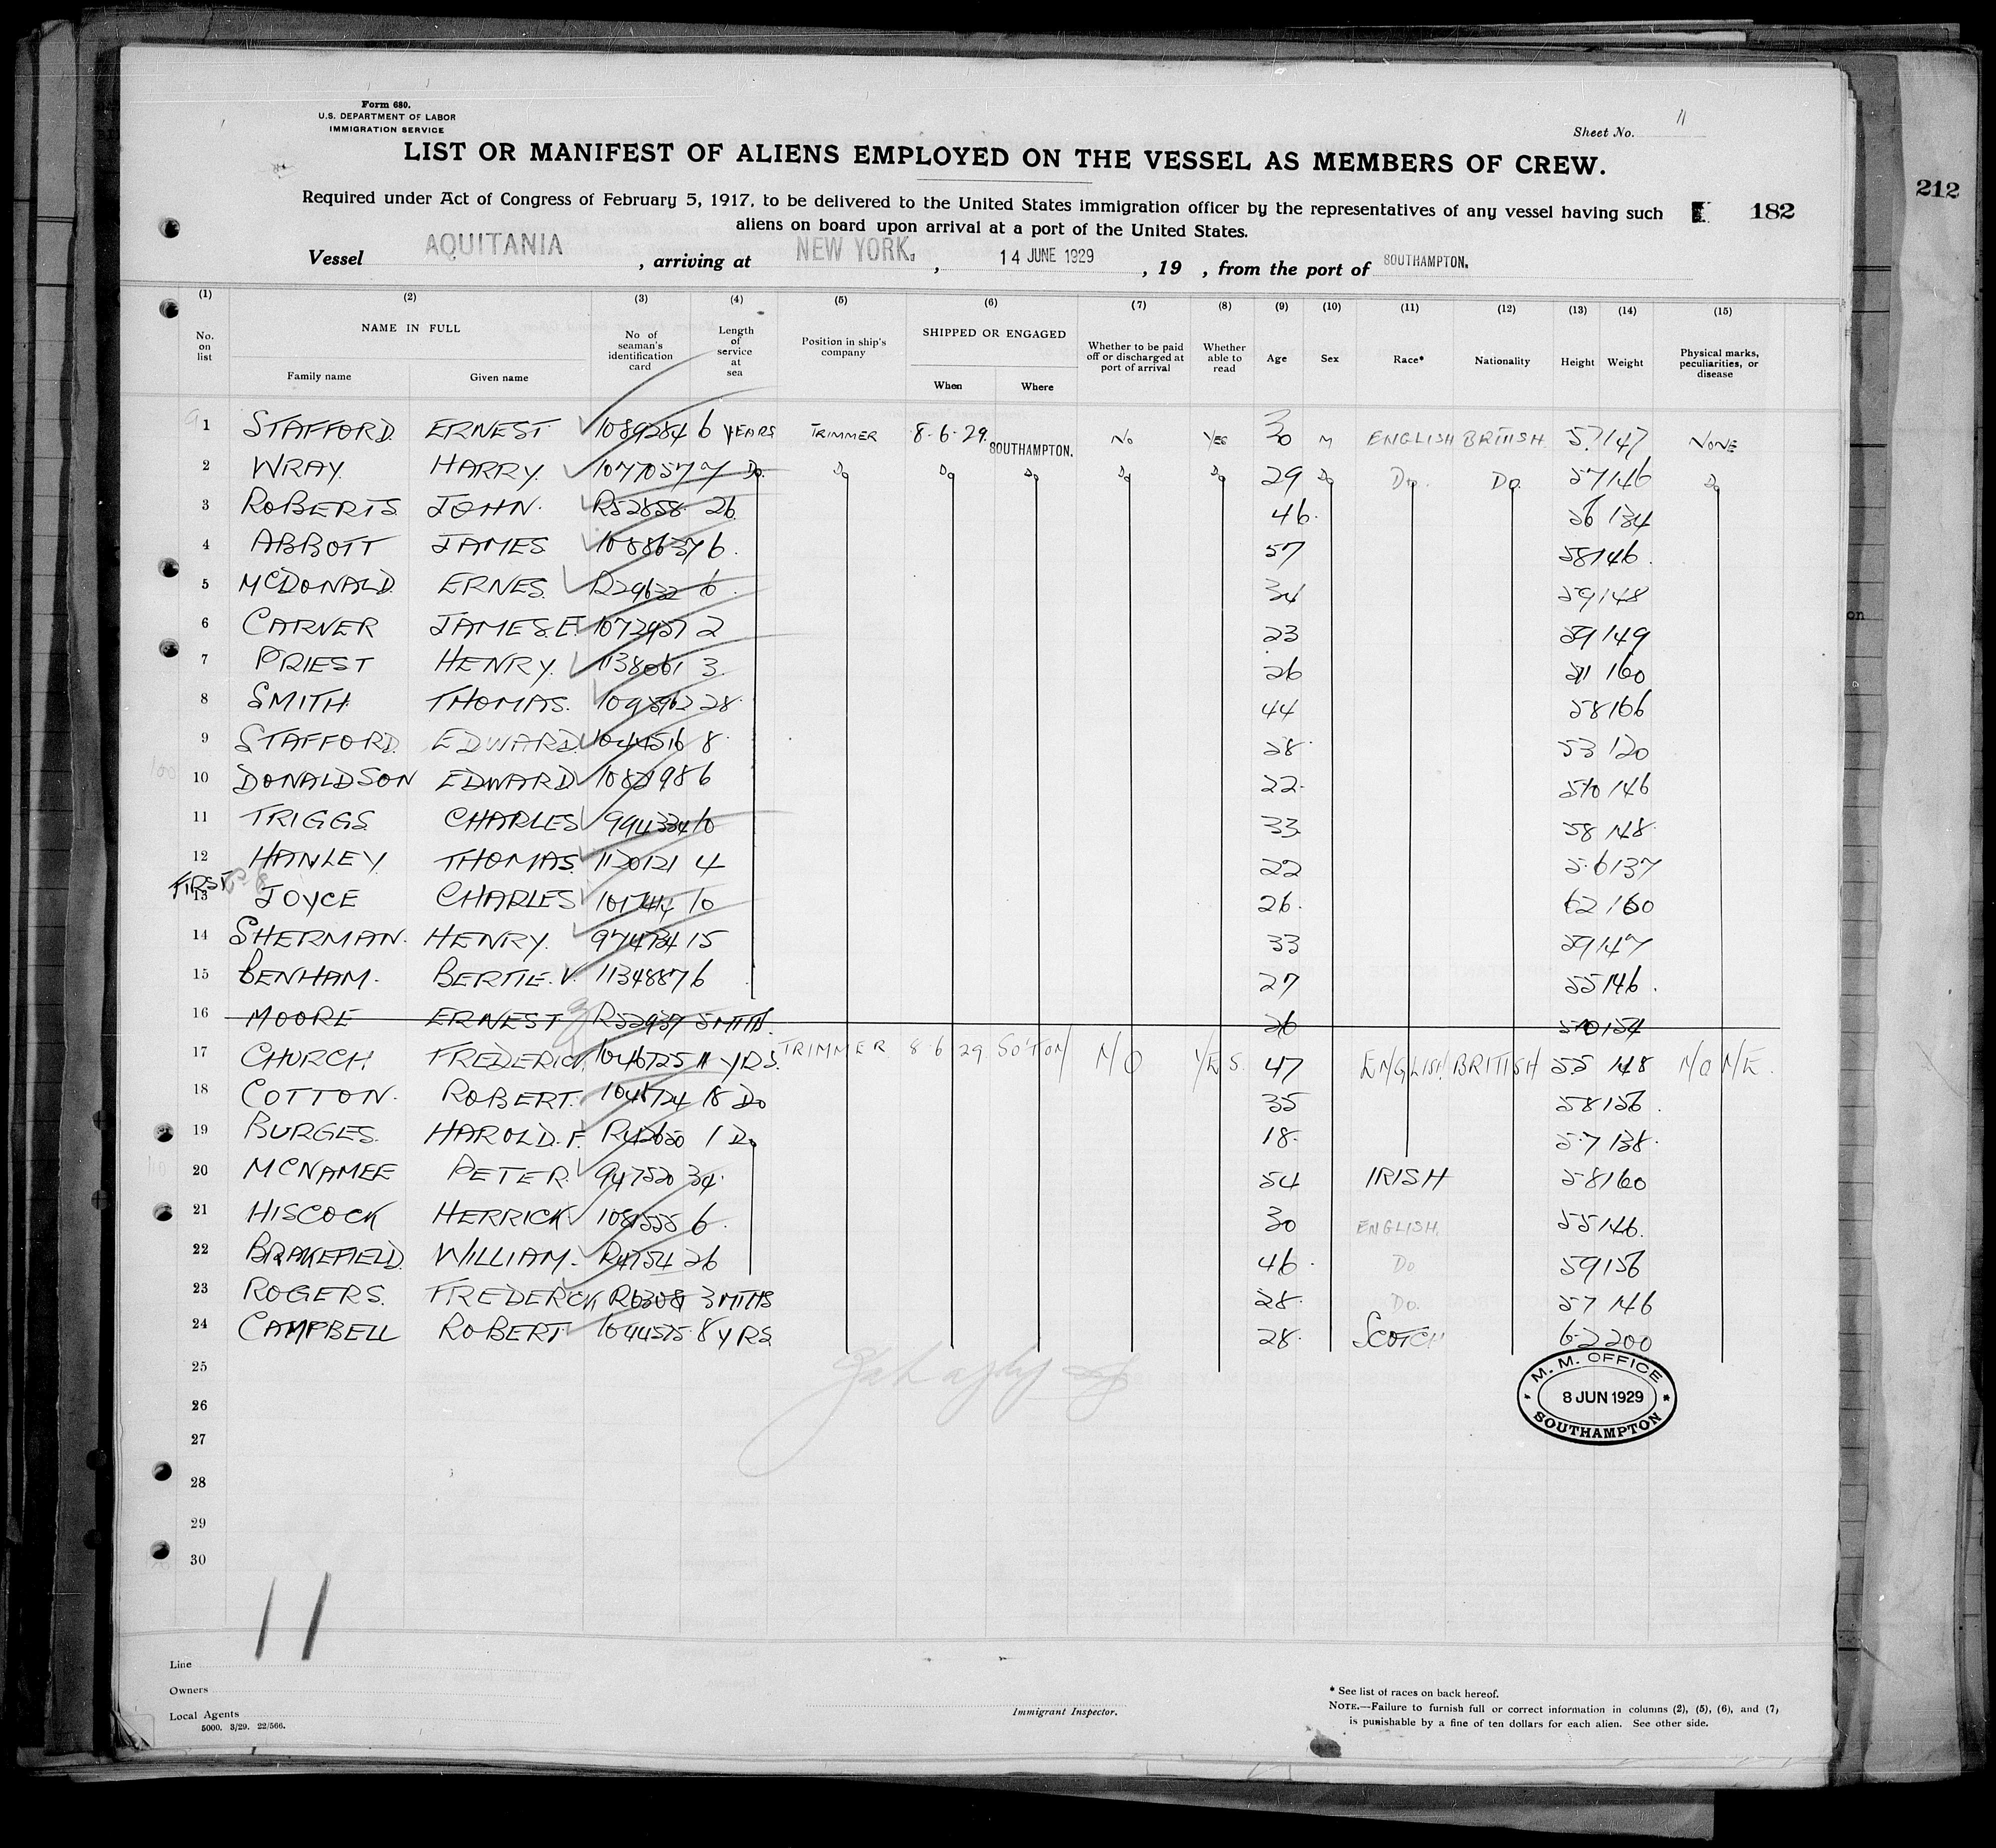 Form 680.
U.S. DEPARTMENT OF LABOR
IMMIGRATION SERVICE
Sheet No. 11
LIST OR MANIFEST OF ALIENS EMPLOYED ON THE VESSEL AS MEMBERS OF CREW.
Required under Act of Congress of February 5, 1917, to be delivered to the United States immigration officer by the representatives of any vessel having such
aliens on board upon arrival at a port of the United States.
182
212
Vessel AQUITANIA, arriving at NEW YORK., 14 JUNE 1929, 19 , from the port of SOUTHAMPTON.
(1) (2) (3) (4) (5) (6) (7) (8) (9) (10) (11) (12) (13) (14) (15)
No. on list NAME IN FULL Family name Given name No of seaman's identification card Length of service at sea Position in ship's company SHIPPED OR ENGAGED When Where Whether to be paid off or discharged at port of arrival Whether able to read Age Sex Race* Nationality Height Weight Physical marks, peculiarities, or disease
1 STAFFORD. ERNEST 1089284 6 YEARS TRIMMER 8.6.29. SOUTHAMPTON. No YES 30 M ENGLISH BRITISH 5.7 147 NONE
2 WRAY. HARRY. 1077057 7 Do. Do Do Do Do Do 29 Do Do. Do. 57 146 Do
3 ROBERTS JOHN. R52858 26 46. 56 134
4 ABBOTT JAMES 1088637 6. 57 58 146.
5 McDONALD. ERNES. R29632 6. 34 59 148
6 CARNER JAMES.E. 1072957 2 23 59 149
7 PRIEST HENRY. 1138061 3 26 511 160
8 SMITH THOMAS. 28 44 58 166
9 STAFFORD. EDWARD. 1044516 8. 28. 53 120
10 DONALDSON EDWARD 108798 6 22. 510 146
11 TRIGGS CHARLES 994334 10 33 58 148.
12 HANLEY. THOMAS. 1120121 4 22 5.6 137
FIRST
13 JOYCE CHARLES 10 26. 62 160
14 SHERMAN. HENRY. 15 33 59 147
15 BENHAM. BERTIE.V. 1134887 6 27 55 146.
16 MOORE ERNEST R52937 5 MTHS. 26 510 154
17 CHURCH. FREDERICK. 1046725 11 YRS. TRIMMER 8.6.29. SO'TON NO YES. 47 ENGLISH BRITISH 55 148 NONE.
18 COTTON. ROBERT. 18 Do 35 58 156.
19 BURGES. HAROLD.F. R42650 1 Do 18. 5.7 138.
20 McNAMEE PETER. 947520 34. 54 IRISH 58 160
21 HISCOCK HERRICK 6. 30 ENGLISH. 55 146.
22 BRAKEFIELD. WILLIAM. R4754 26 46. Do 59 156
23 ROGERS. FREDERICK R6308 3 MTHS 28. Do. 57 146
24 CAMPBELL ROBERT 1044575 8 YRS 28. SCOTCH 6-2 200
25
26
27
28
29
30
M. M. OFFICE
8 JUN 1929
SOUTHAMPTON
11
Line
Owners
Local Agents
5000. 3/29. 22/566.
Immigrant Inspector.
* See list of races on back hereof.
NOTE.—Failure to furnish full or correct information in columns (2), (5), (6), and (7)
is punishable by a fine of ten dollars for each alien. See other side.